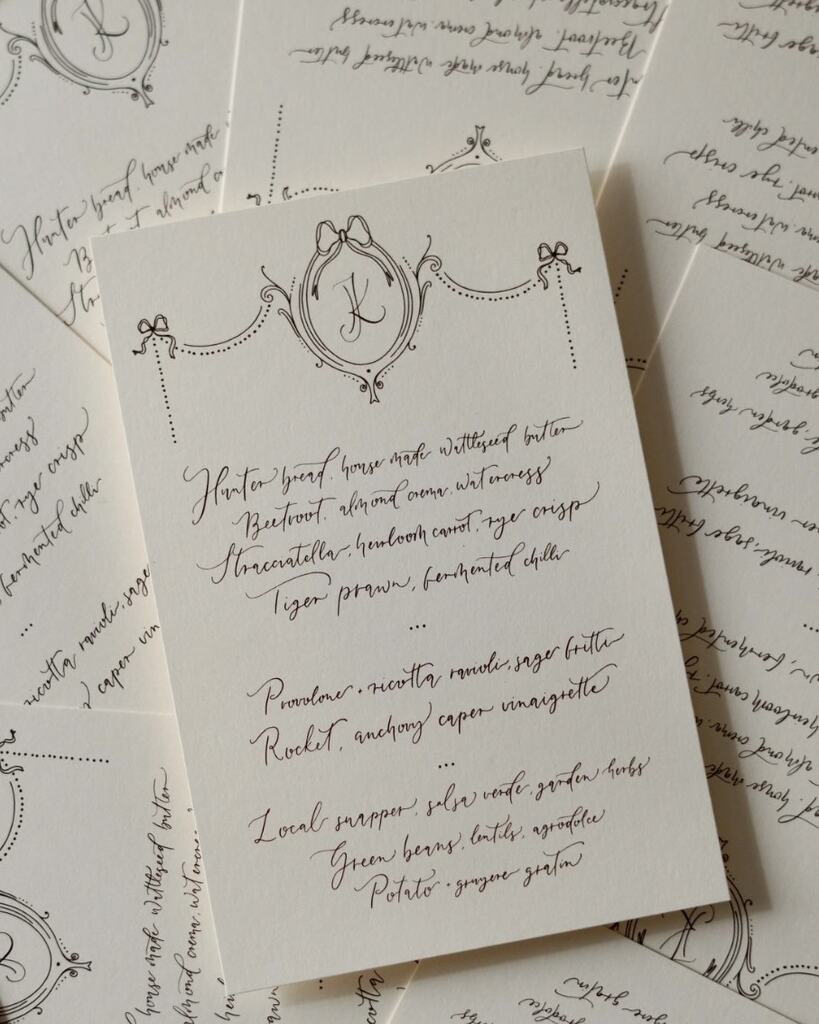 JK
Hunter bread, house made wattleseed butter
Beetroot, almond crema, watercress
Stracciatella, heirloom carrot, rye crisp
Tiger prawn, fermented chilli
...
Provolone + ricotta ravioli, sage fritti
Rocket, anchovy caper vinaigrette
...
Local snapper, salsa verde, garden herbs
Green beans, lentils, agrodolce
Potato + gruyere gratin